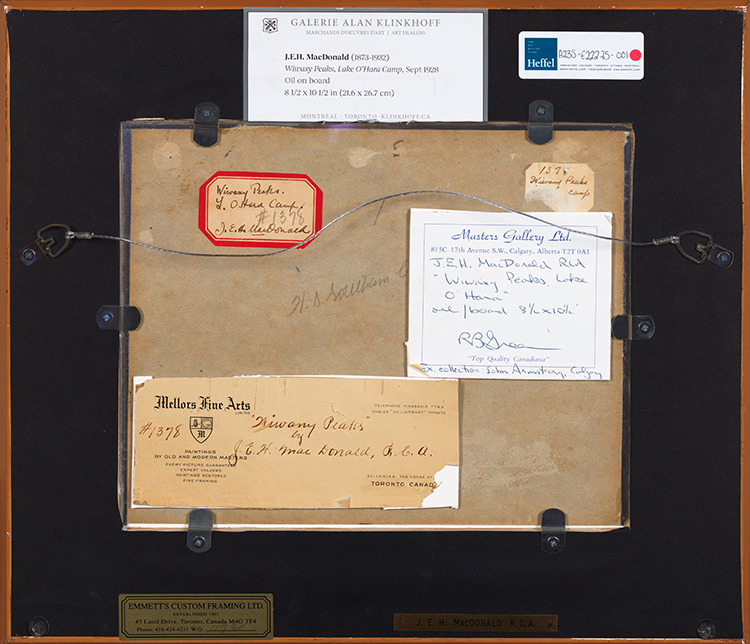 GALERIE ALAN KLINKHOFF
MARCHANDS D'OEUVRES D'ART | ART DEALERS
J.E.H. MacDonald (1873-1932)
Wiwaxy Peaks, Lake O'Hara Camp, Sept 1928
Oil on board
8 1/2 x 10 1/2 in (21.6 x 26.7 cm)
MONTRÉAL · TORONTO · KLINKHOFF.CA
Heffel
A23S-E22225-001
Wiwaxy Peaks.
L. O'Hara Camp.
#1378
J.E.H. MacDonald
1378
Wiwaxy Peaks
Camp
H. S. Southam
Masters Gallery Ltd.
815C-17th Avenue S.W., Calgary, Alberta T2T 0A1
J.E.H. MacDonald RCA
"Wiwaxy Peaks, Lake
O'Hara"
oil/board 8½x10½
"Top Quality Canadiana"
Ex. collection John Armstrong, Calgary
Mellors Fine Arts
LIMITED
#1378
"Wiwaxy Peaks"
by
J. E. H. Mac Donald, R.C.A.
PAINTINGS
BY OLD AND MODERN MASTERS
EVERY PICTURE GUARANTEED
EXPERT VALUERS
PAINTINGS RESTORED
FINE FRAMING
TORONTO, CANADA
EMMETT'S CUSTOM FRAMING LTD.
ESTABLISHED 1963
45 Laird Drive, Toronto, Canada M4G 3T4
Phone: 416-424-4221 W.O.
J. E. H. MACDONALD R.C.A.